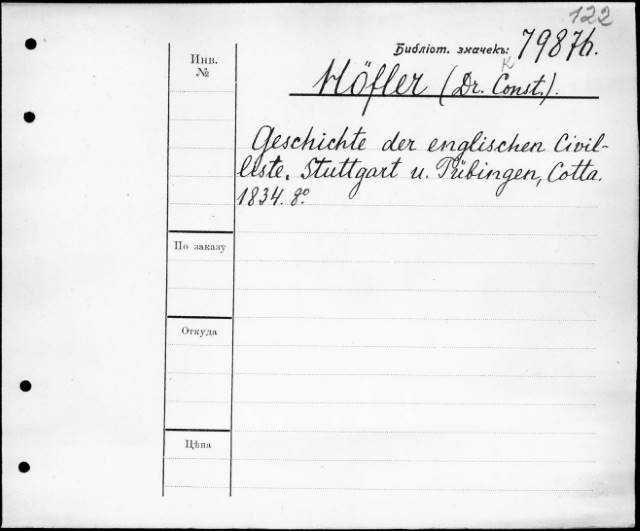 122
Библіот. значекъ: 7987б.
Инв.
№
К
Höfler (Dr. Const.).
Geschichte der englischen Civil-
liste. Stuttgart u. Tübingen, Cotta.
1834. 8º
По заказу
Откуда
Цѣна